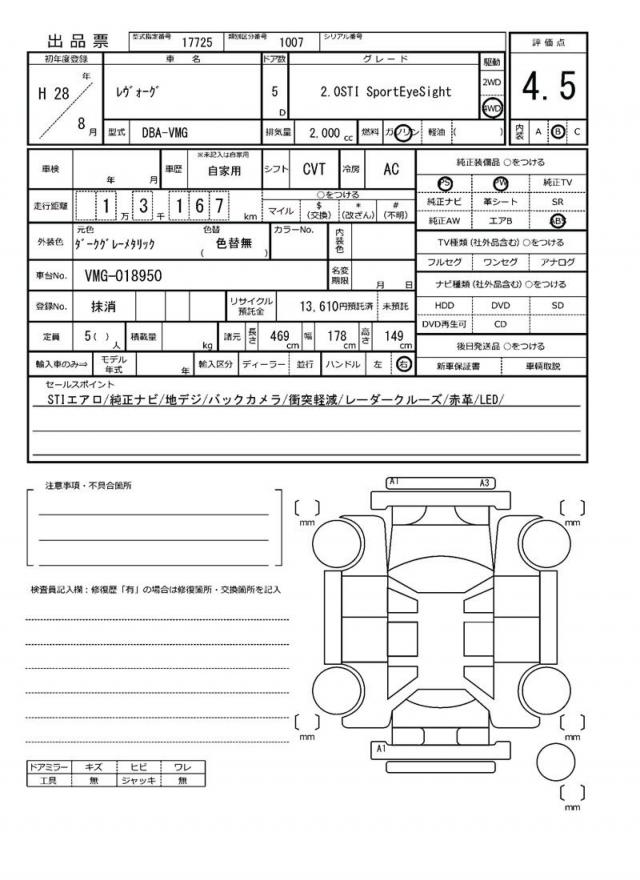 出品票 型式指定番号 17725 類別区分番号 1007 シリアル番号
初年度登録 車名 ドア数 グレード 駆動 評価点
H 28 年 ﾚｳﾞｫｰｸﾞ 5 D 2.0STI SportEyeSight 2WD 4WD 4.5
8 月 型式 DBA-VMG 排気量 2,000 cc 燃料 ガソリン 軽油 ( ) 内装 A B C
車検 年 月 車歴 ※未記入は自家用 自家用 シフト CVT 冷房 AC 純正装備品 ○をつける
PS PW 純正TV
走行距離 1 万 3 千 1 6 7 km ○をつける マイル $(交換) *(改ざん) #(不明) 純正ナビ 革シート SR
純正AW エアB ABS
外装色 元色 ﾀﾞｰｸｸﾞﾚｰﾒﾀﾘｯｸ 色替 ( 色替無 ) カラーNo. 内装色 TV種類 (社外品含む) ○をつける
フルセグ ワンセグ アナログ
車台No. VMG-018950 名変期限 月 日 ナビ種類 (社外品含む) ○をつける
登録No. 抹消 リサイクル預託金 13,610円預託済 未預託 HDD DVD SD
DVD再生可 CD
定員 5( ) 人 積載量 kg 諸元 長さ 469 cm 幅 178 cm 高さ 149 cm 後日発送品 ○をつける
輸入車のみ⇒ モデル年式 年 輸入区分 ディーラー 並行 ハンドル 左 右 新車保証書 車輌取説
セールスポイント
STIエアロ/純正ナビ/地デジ/バックカメラ/衝突軽減/レーダークルーズ/赤革/LED/
注意事項・不具合箇所
A1 A3
mm mm
検査員記入欄：修復歴「有」の場合は修復箇所・交換箇所を記入
mm mm
A1
ドアミラー キズ ヒビ ワレ
工具 無 ジャッキ 無
mm